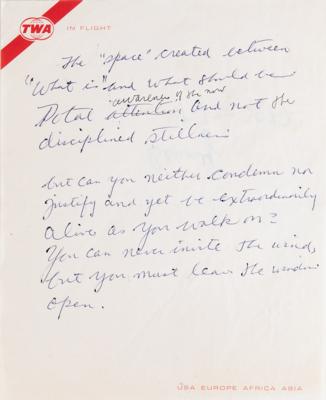 TWA
IN FLIGHT
The "space" created between
"What is" and what should be
awareness of the now
Total attention and not the
disciplined stillness
but can you neither condemn nor
justify and yet be extraordinarily
alive as you walk on?
You can never invite the wind,
but you must leave the window
open.
USA EUROPE AFRICA ASIA